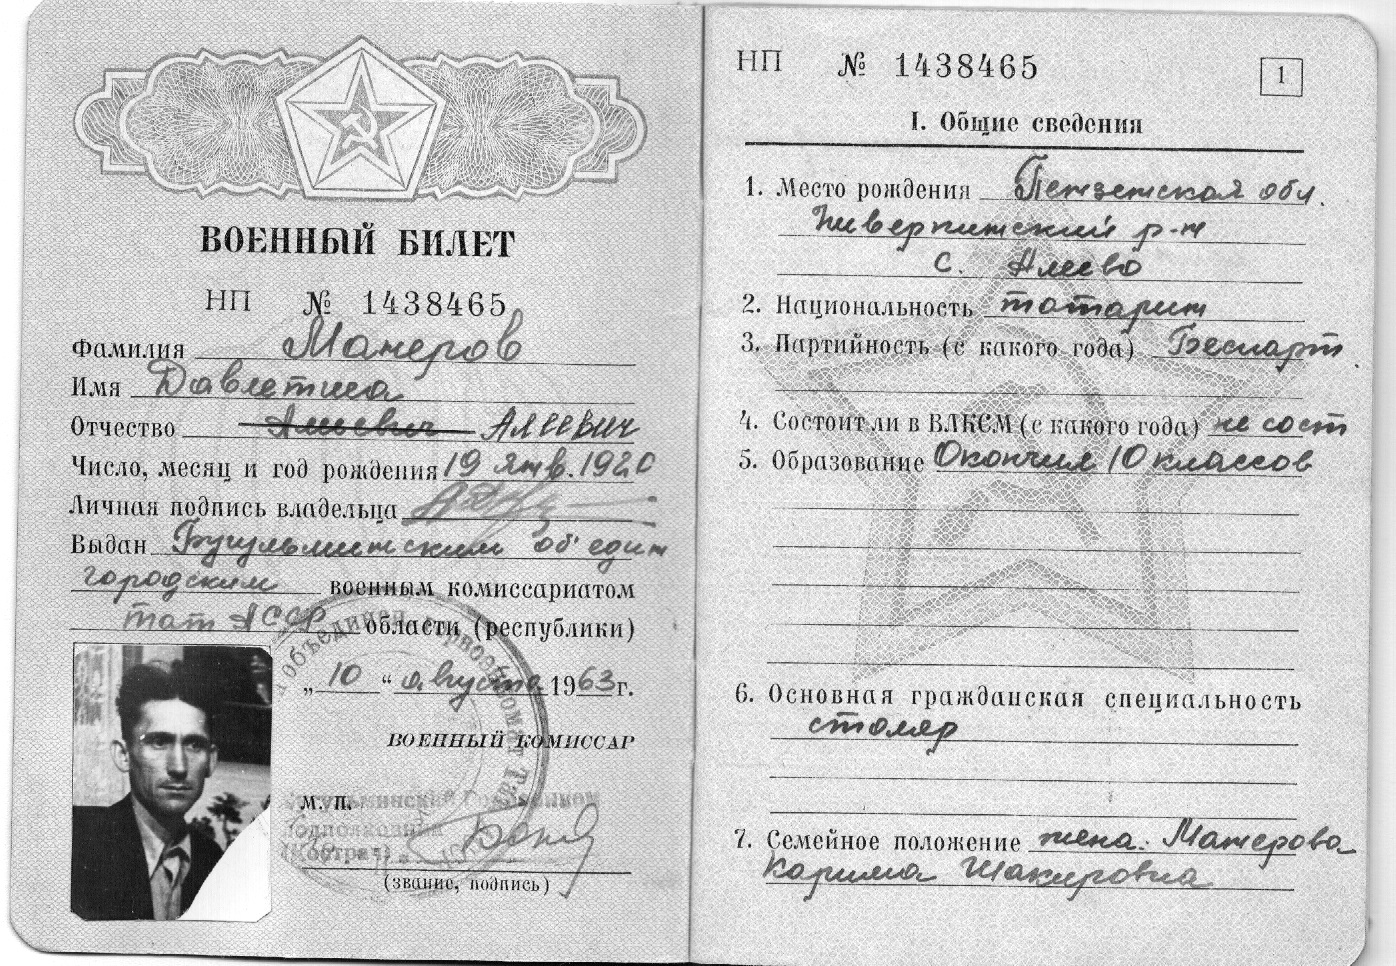 ВОЕННЫЙ БИЛЕТ
НП № 1438465
Фамилия Манеров
Имя Давлетша
Отчество Алиевич Алеевич
Число, месяц и год рождения 19 янв. 1920
Личная подпись владельца
Выдан Бугульминским об'един
городским военным комиссариатом
тат АССР области (республики)
„10“ августа 1963 г.
ВОЕННЫЙ КОМИССАР
М. П.
Подполковник
(звание, подпись)
НП № 1438465
1
I. Общие сведения
1. Место рождения Пензенская обл.
Неверкинский р-н
с. Алеево
2. Национальность татарин
3. Партийность (с какого года) Беспарт.
4. Состоит ли в ВЛКСМ (с какого года) не сост
5. Образование Окончил 10 классов
6. Основная гражданская специальность
столяр
7. Семейное положение жена. Манерова
Карима Шакировна